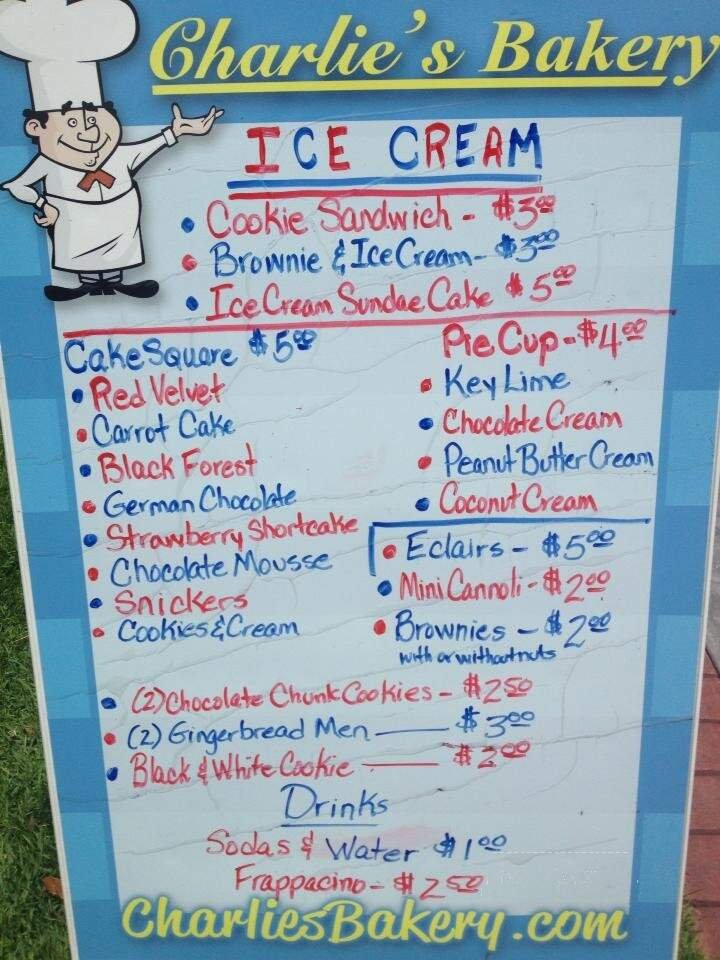 Charlie's Bakery
ICE CREAM
• Cookie Sandwich - $3.00
• Brownie & Ice Cream - $3.00
• Ice Cream Sundae Cake $5.00
Cake Square $5.00
• Red Velvet
• Carrot Cake
• Black Forest
• German Chocolate
• Strawberry Shortcake
• Chocolate Mousse
• Snickers
• Cookies & Cream
Pie Cup - $4.00
• Key Lime
• Chocolate Cream
• Peanut Butter Cream
• Coconut Cream
• Eclairs - $5.00
• Mini Cannoli - $2.00
• Brownies - $2.00
with or without nuts
• (2) Chocolate Chunk Cookies - $2.50
• (2) Gingerbread Men — $3.00
• Black & White Cookie — $2.00
Drinks
Sodas & Water $1.00
Frappacino - $2.50
CharliesBakery.com